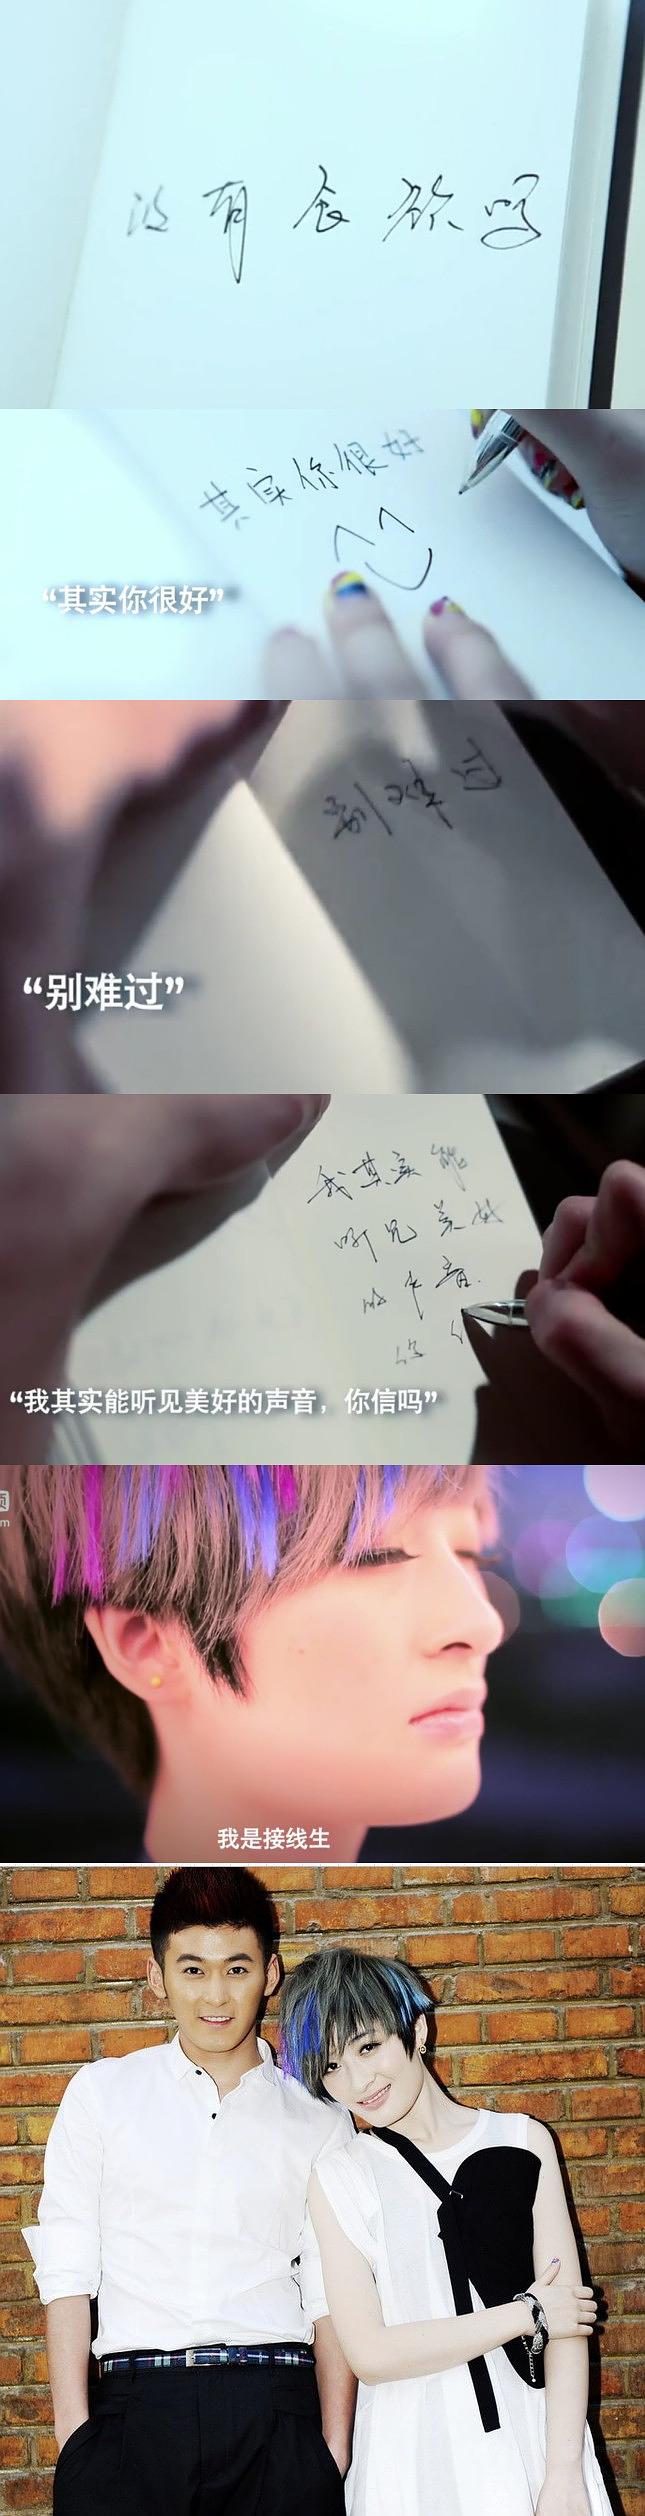 没有食欲吗
其实你很好
“其实你很好”
别难过
“别难过”
我其实能
听见美好
的声音
你
“我其实能听见美好的声音，你信吗”
频
m
我是接线生